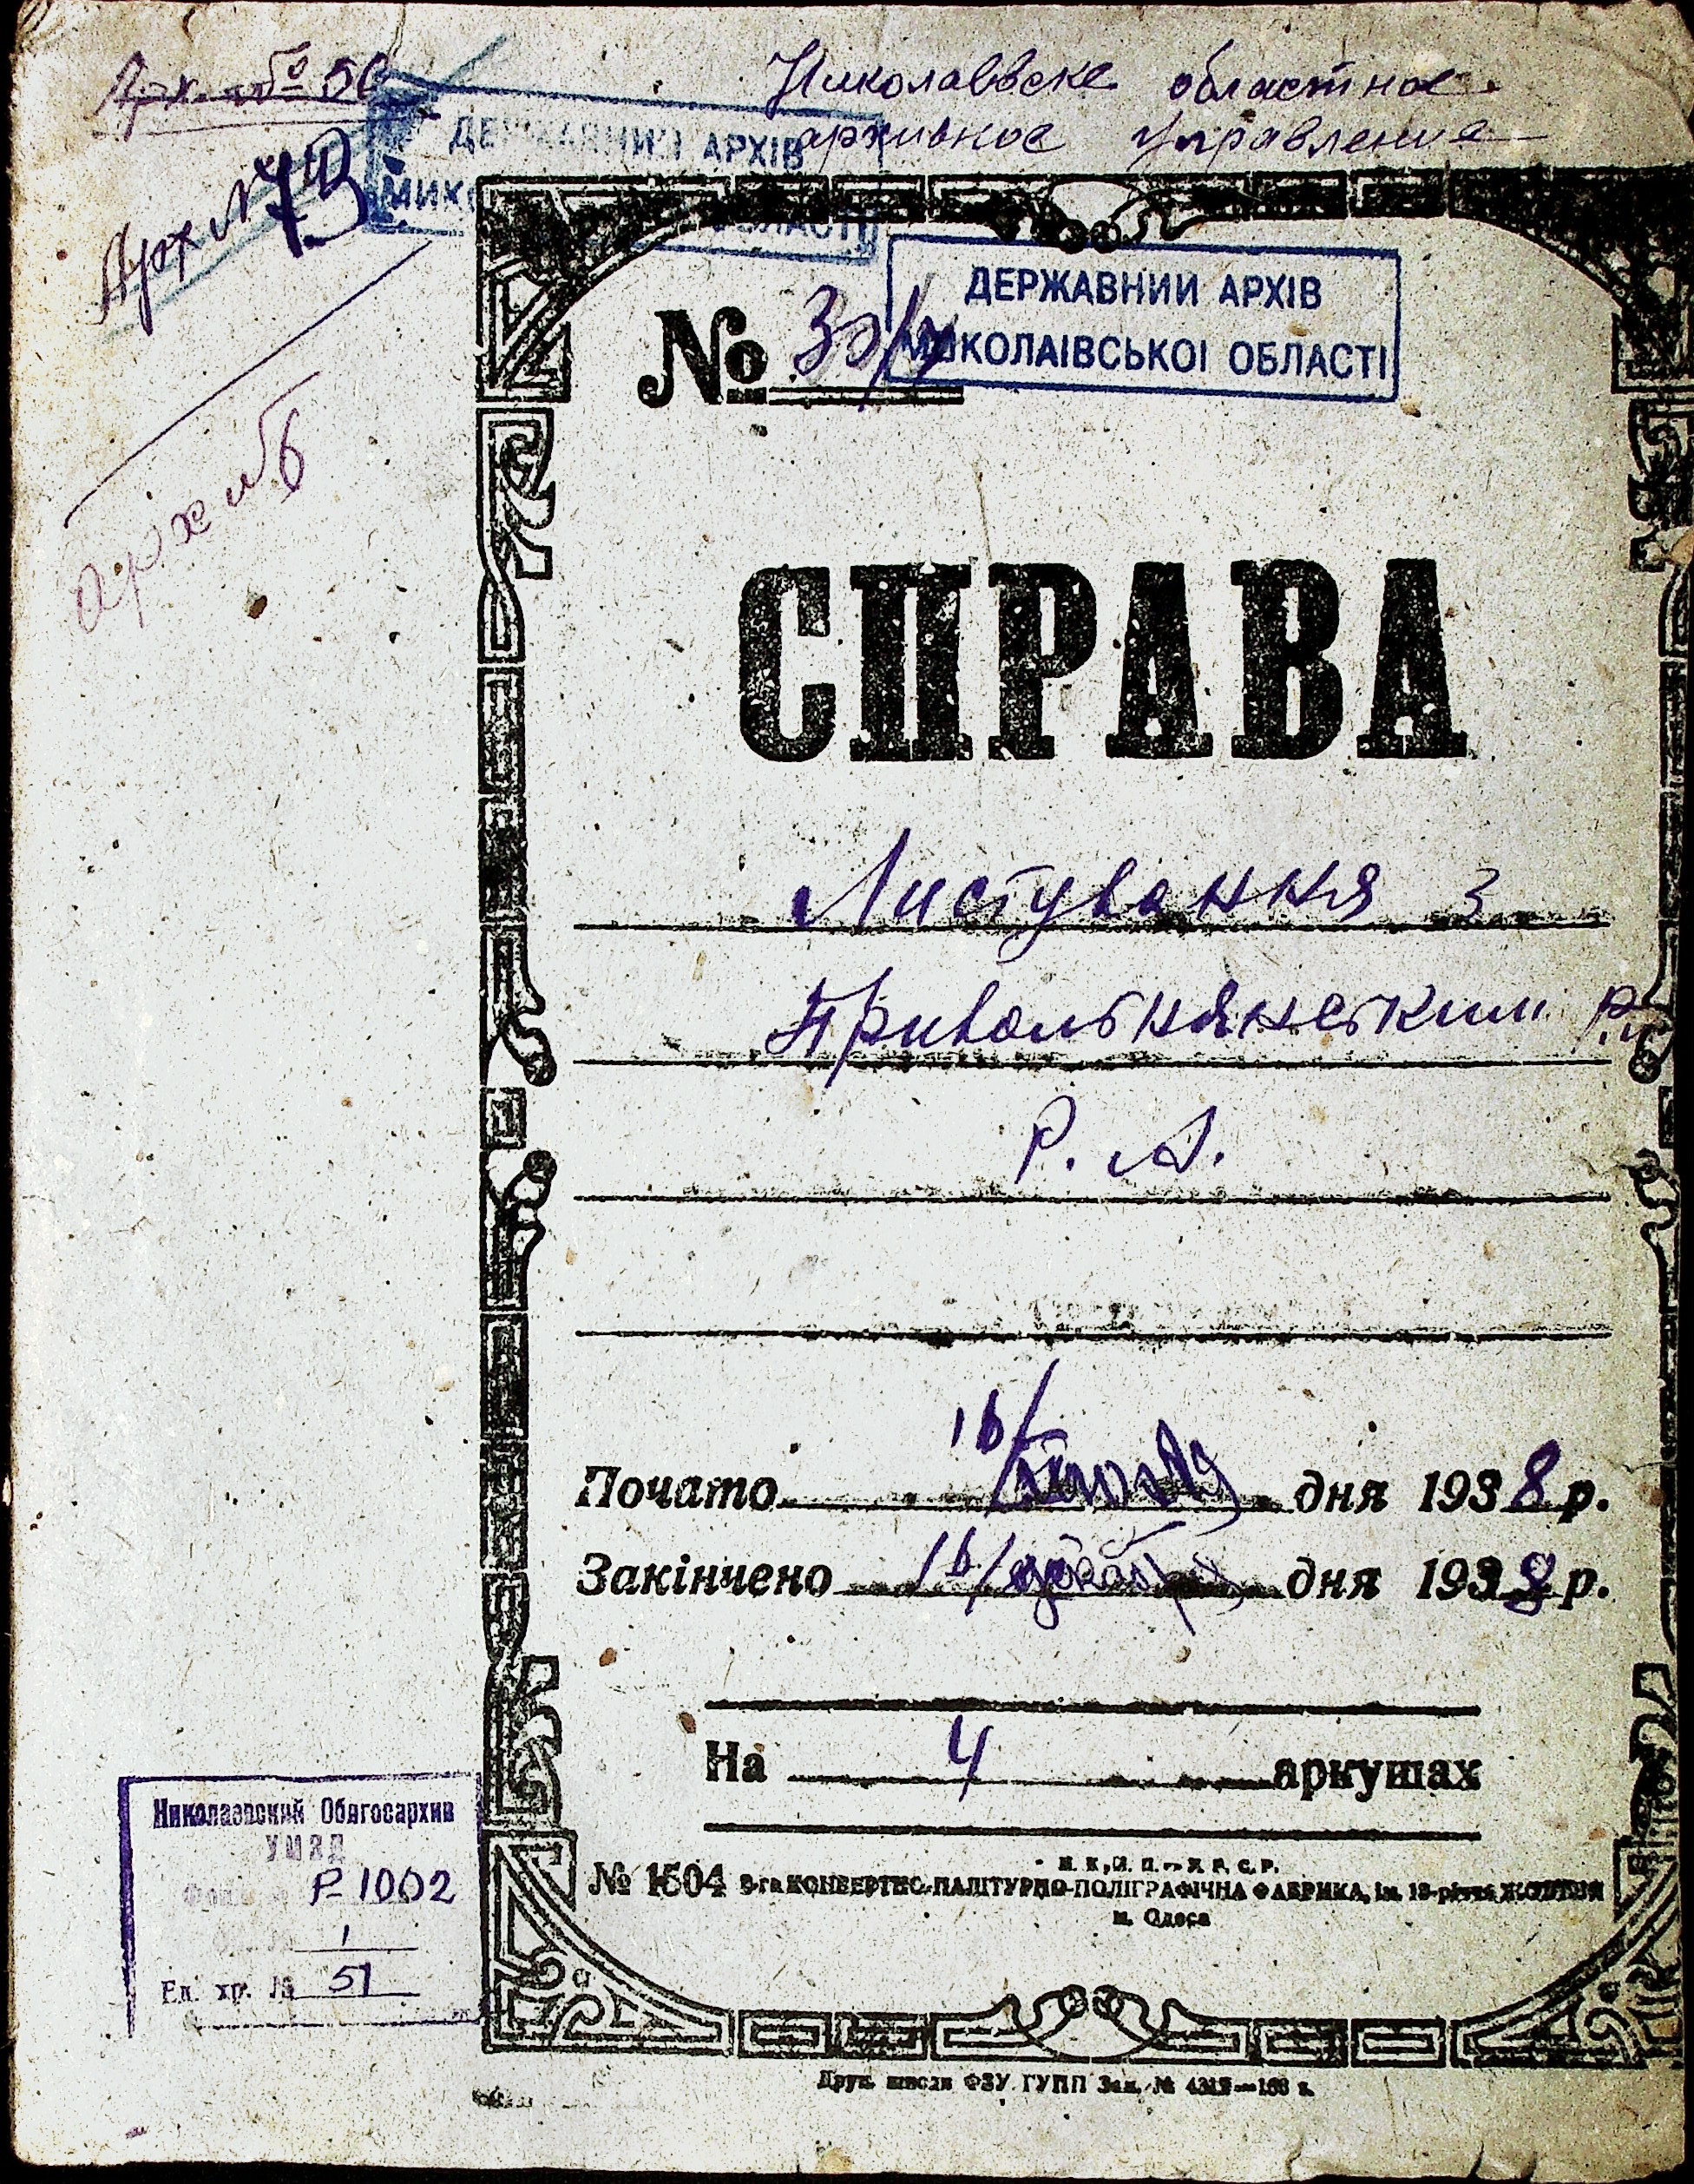 Николаевске областное
архивное управление
Арх. № 56
ДЕРЖАВНИЙ АРХІВ
ОБЛАСТІ
Арх №
ДЕРЖАВНИЙ АРХІВ
МИКОЛАІВСЬКОІ ОБЛАСТІ
№
арх №6
СПРАВА
Листування з
Привольнянським
Р. А.
Почато 16/ дня 1938 р.
Закінчено 16/декабря дня 1938 р.
На 4 аркушах
Николаевский Облгосархив
УМВД
Р-1002
1
Ед. хр. № 51
№ 1504 КОНВЕРТНО-ПАЛІТУРНО-ПОЛІГРАФІЧНА ФАБРИКА, ім.
м. Одеса
Друк. школи ФЗУ ГУПП Зам. №